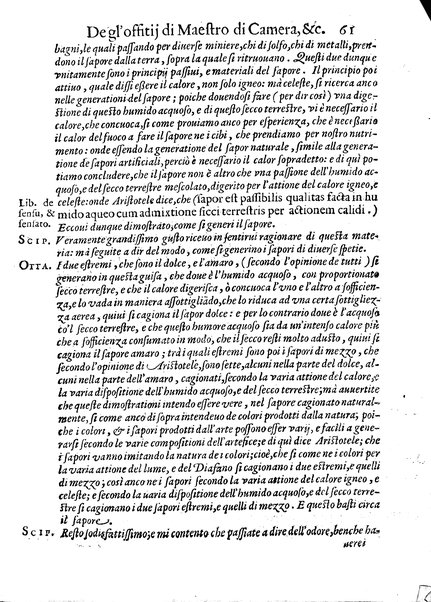 De gl'offitij di Maestro di Camera, &c. 61
bagni, le quali passando per diuerse miniere, chi di solfo, chi di metalli, pren-
dono il sapore dalla terra, sopra la quale si ritruouano. Questi due dunque
vnitamente sono i principij passiui, e materiali del sapore. Il principio poi
attiuo, quale dissi essere il calore, non solo igneo: ma celeste, si ricerca anco
nelle generationi del sapore; poiche douendosi fare (per dir così) vna dige-
stione di questo humido acquoso, e di questo secco terrestre, vi è necessario il
calore, che concuoca, si come prouiamo anco per esperienza, che è necessario il
calor del fuoco a fare il sapore ne i cibi, che prendiamo per nostro nutri-
mento: onde essendo la generatione del sapor naturale, simile alla genera-
tione de sapori artificiali, perciò è necessario il calor sopradetto: e di quì po-
tiamo concludere, che il sapore non è altro che vna passione dell'humido ac-
quoso, e del secco terrestre mescolato, digerito per l'attione del calore igneo, e
Lib. de celeste: onde Aristotele dice, che (sapor est passibilis qualitas facta in hu
sensu, & mido aqueo cum admixtione sicci terrestris per actionem calidi.)
sensato. Eccoui dunque dimostrato, come si generi il sapore.
SCIP. Veramente grandissimo gusto riceuo in sentirui ragionare di questa mate-
ria: ma seguite a dir del modo, come si generino i sapori di diuerse spetie.
OTTA. I due estremi, che sono il dolce, e l'amaro, (secondo l'opinione de tutti) si
generano in questa guisa, che doue è l'humido acquoso, con proportionato
secco terrestre, e che il calore digerisca, ò concuoca l'vno e l'altro a sofficien-
za, e lo vada in maniera assottigliādo, che lo riduca ad vna certa sottigliez-
za aerea, quiui si cagiona il sapor dolce: e per lo contrario doue è l'acquoso
co'l secco terrestre, e che questo humore acquoso sia da vn'intenso calore più
che a sofficienza consumato in modo, che il secco resti molto adusto, quiui si
cagiona il sapore amaro; trà i quali estremi sono poi i sapori di mezzo, che
secondo l'opinione di Aristotele, sono sette, alcuni nella parte del dolce, al-
cuni nella parte dell'amaro, cagionati, secondo la varia attione del calore, e
la varia dispositione dell'humido acquoso, e del secco terrestre; mà auuertite
che queste dimostrationi intendo essere vere, nel sapore cagionato naturalm-
mente, sì come anco di sopra intendeuo de colori prodotti dalla natura; poi-
che i colori, & i sapori prodotti dall'arte possono esser varij, e facili a gene-
rarsi secondo le varie compositioni dell'artefice; e di quì dice Aristotele; che
i sapori vanno imitando la natura de i colori; cioè, che si come ne i colori per
la varia attione del lume, e del Diafano si cagionano i due estremi, e quelli
di mezzo; così anco ne i sapori secondo la varia attione del calore igneo, e
celeste; e secondo la uaria dispositione dell'humido acquoso, e del secco terre-
stre si cagionano i due estremi, e quelli di mezzo. E questo basti circa
il sapore.
SCIP. Resto sodisfattissimo; e mi contento che passiate a dire dell'odore, benche ha-
uerei